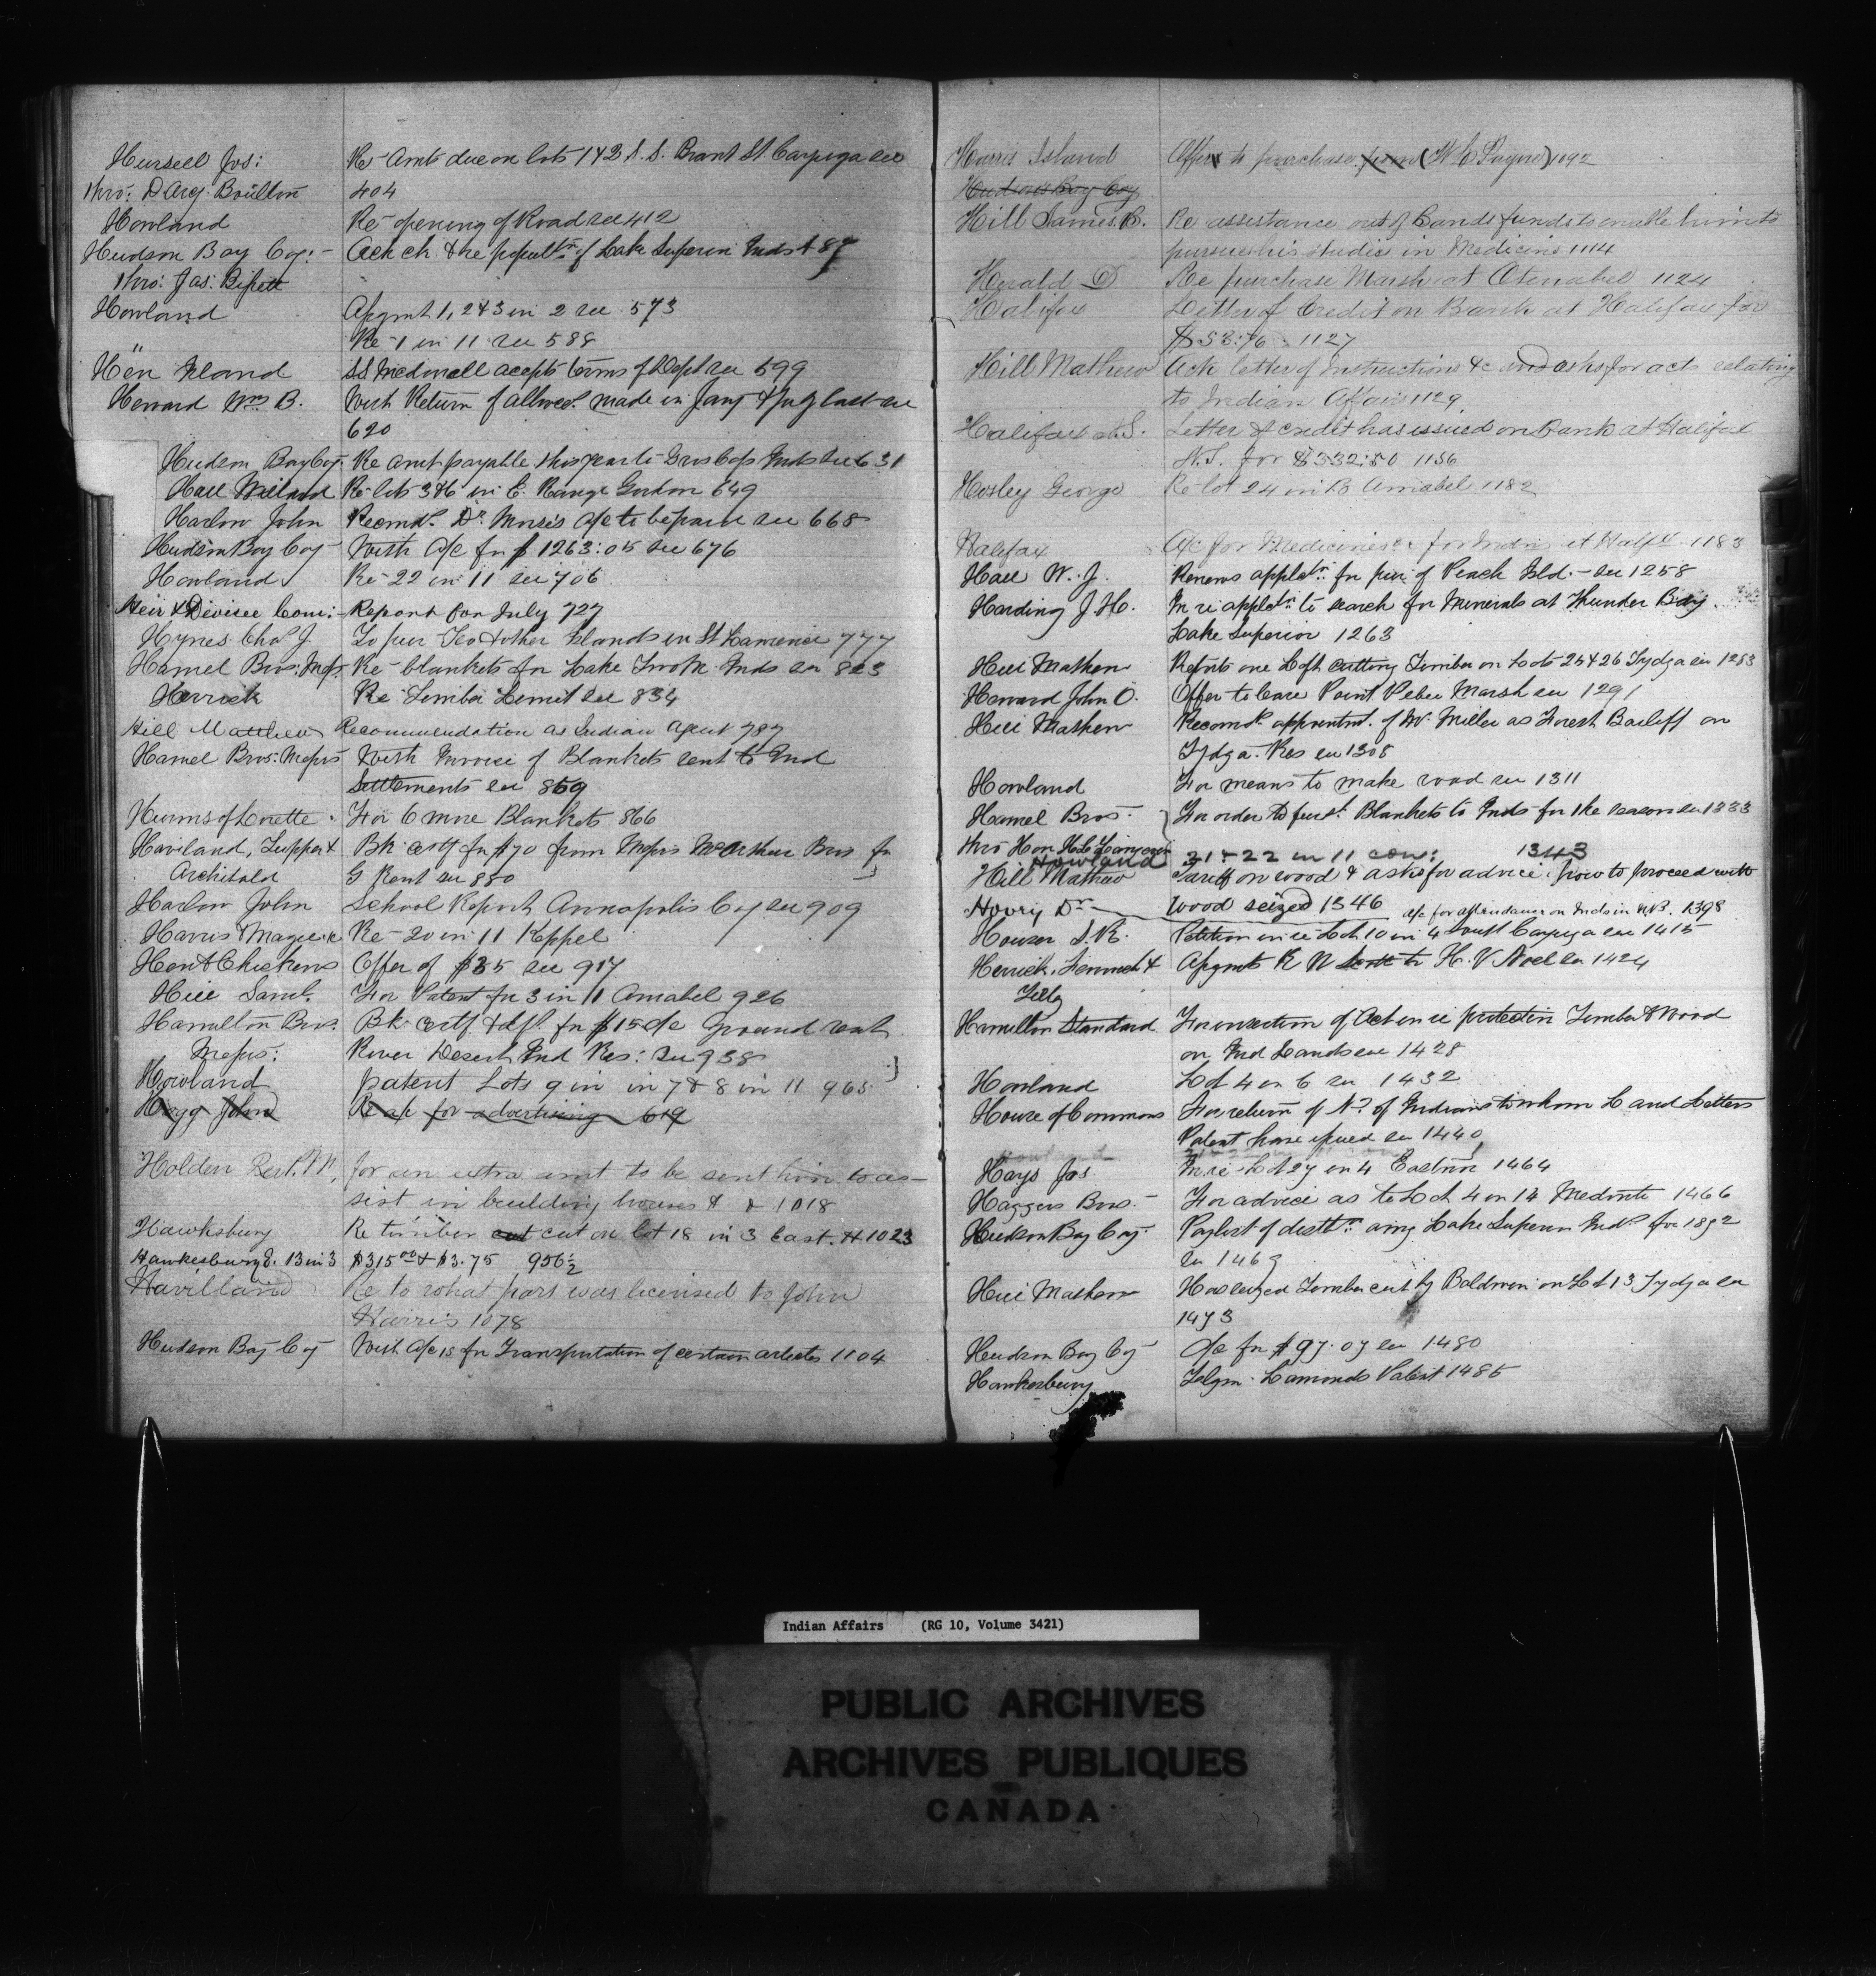 Hursell Jos: Re Amt due on lots 1 & 2 S. S. Brant St Cayuga see
thro: D'Arcy Boulton 404
Howland Re opening of Road see 412
Hudson Bay Coy:- Ack ch & re popultn of Lake Superior Inds
thro: Jas:
Howland Asgmt 1, 2 & 3 in 2 see 573
" Re 1 in 11 see 588
Hen Island SS McDonell accepts terms of Dept see 599
Howard Wm B. With Return of allwces made in Jany & July last see
620
Hudson Bay Coy Re amt payable this year to Gros Caps Inds see 631
Re lots 3 & 6 in E. Range Gordon 649
Harlow John Recmds Dr Morris a/c to be paid see 668
Hudson Bay Coy With a/c for $1263:05 see 676
Howland Re 22 in 11 see 706
Heir & Devisee Com:- Report for July 727
Hynes Chas J. To pur Two other Islands in St Lawrence 777
Hamel Bros: Messrs Re blankets for Lake Inds see 823
Herrick Re Timber Limit see 834
Hill Matthew Recommendation as Indian Agent 787
Hamel Bros: Messrs With Invoice of Blankets sent to Ind
Settlements see 859
Hurons of Lorette For 6 more Blankets 866
Haviland, Tupper & Bk certf for $70 from Messrs McArthur Bros for
Archibald G Rent see 880
Harlow John School Report Annapolis Coy see 909
Harris Re 20 in 11 Keppel
Offer of $35 see 917
Hill Saml. For Patent for 3 in 11 Amabel 926
Hamilton Bros. Bk certf & dft for $15 a/c ground rent
Messrs: River Desert Ind Res: see 938
Howland patent Lots 9 in in 7 & 8 in 11 965
Hogg John Re a/c for advertising 619
Holden Revd. for an extra amt to be sent him to as-
sist in building houses & & 1018
Hawksbury Re timber cut cut on lot 18 in 3 East. H 1023
Hawkesbury E. 13 in 3 $315 00 & $3.75 956½
Havilland Re to what part was licensed to John
Harris 1078
Hudson Bay Coy With a/cs for Transportation of certain articles 1104
Harris Island Offers to purchase from (W C Payne) 1092
Hudsons Bay Coy
Hill James B. Re assistance out of Bands funds to enable him to
pursue his studies in Medicine 1114
Herald D Re purchase Marsh at Otenabel 1124
Halifax Letter of Credit on Bank at Halifax for
$53:76 1127
Hill Mathew Ack letter of Instructions &c and asks for acts relating
to Indian Affairs 1129
Halifax N.S. Letter of credit has issued on Bank at Halifax
N.S. for $332:50 1156
Hosley George Re lot 24 in B Amabel 1182
Halifax A/c for Medicines for Inds at Halfx 1183
Hall W. J. Renews appletn for pur: of Peach Isld.- see 1258
Harding J. H. In re appletn to search for Minerals at Thunder Bay
Lake Superior 1263
Hill Mathew Reports one Loft cutting Timber on Lots 25 & 26 Tydga see 1283
Howard John O. Offer to lease Point Pelee Marsh see 1291
Hill Mathew Recomds appointmt. of Mr Miller as Forest Bailiff on
Tydga. Res see 1308
Howland For means to make road see 1311
Hamel Bros. } For order to fursh Blankets to Inds for the season see 1333
thro Hon
Howland 21 & 22 in 11 con: 1343
Hill Mathew Tariff on wood & asks for advice how to proceed with
wood seized 1346
Hovry Dr a/c for attendance on Inds in N.B. 1398
Houser S. R. Petition in re Lot 10 in 4 South Cayuga see 1415
Herrick, & Asgmts R N to H. V Noel see 1424
Hamilton Standard For correction of Act in re protection Timber & Wood
on Ind Lands see 1428
Howland Lot 4 in 6 see 1432
House of Commons For return of No of Indians to whom Land Letters
Patent have issued see 1440
Hays Jos In re Lot 27 in 4 Eastnor 1464
Haggers Bros. For advice as to Lot 4 in 14 Medonte 1466
Hudson Bay Coy. Paylist of disttn amg Lake Superior Inds for 1892
see 1469
Hill Mathew Has seized Timber cut by Baldwin on Lot 13 Tydga see
1473
Hudson Bay Coy a/c for $97.07 see 1480
Hawkesbury Telgm Lamonds Patent 1485
Indian Affairs (RG 10, Volume 3421)
PUBLIC ARCHIVES
ARCHIVES PUBLIQUES
CANADA